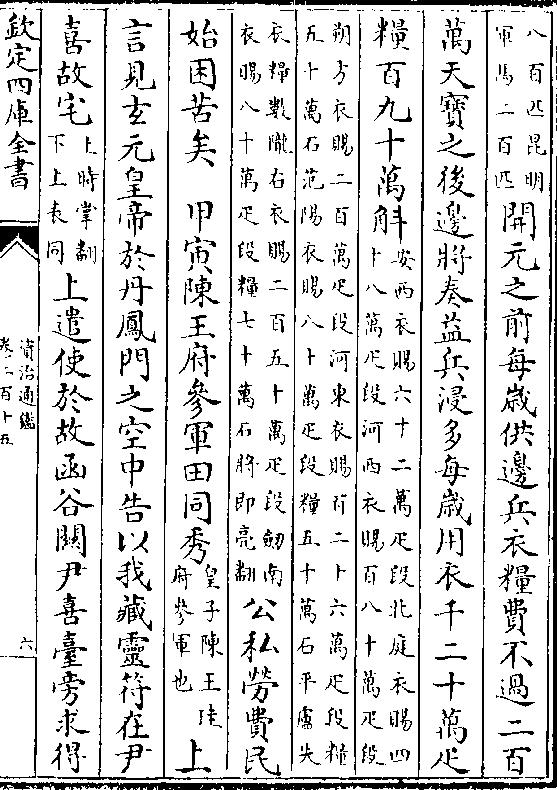 八百匹昆明
軍馬二百匹
開元之前每歳供邊兵衣糧費不過二百
萬天寶之後邊將奏益兵浸多每歳用衣千二十萬疋
糧百九十萬斛
安西衣賜六十二萬疋段北庭衣賜四
十八萬疋段河西衣賜百八十萬疋段
朔方衣賜二百萬疋段河東衣賜百二十六萬疋段糧
五十萬石范陽衣賜八十萬疋段糧五十萬石平盧失
衣糧數隴右衣賜二百五十萬疋段劒南
衣賜八十萬疋段糧七十萬石將即亮翻
公私勞費民
始困苦矣 甲寅陳王府參軍田同秀
皇子陳王珪
府參軍也
上
言見玄元皇帝於丹鳳門之空中告以我藏靈符在尹
喜故宅
上時掌翻
下上表同
上遣使於故函谷關尹喜臺旁求得
欽定四庫全書
資治通鑑
卷二百十五
六